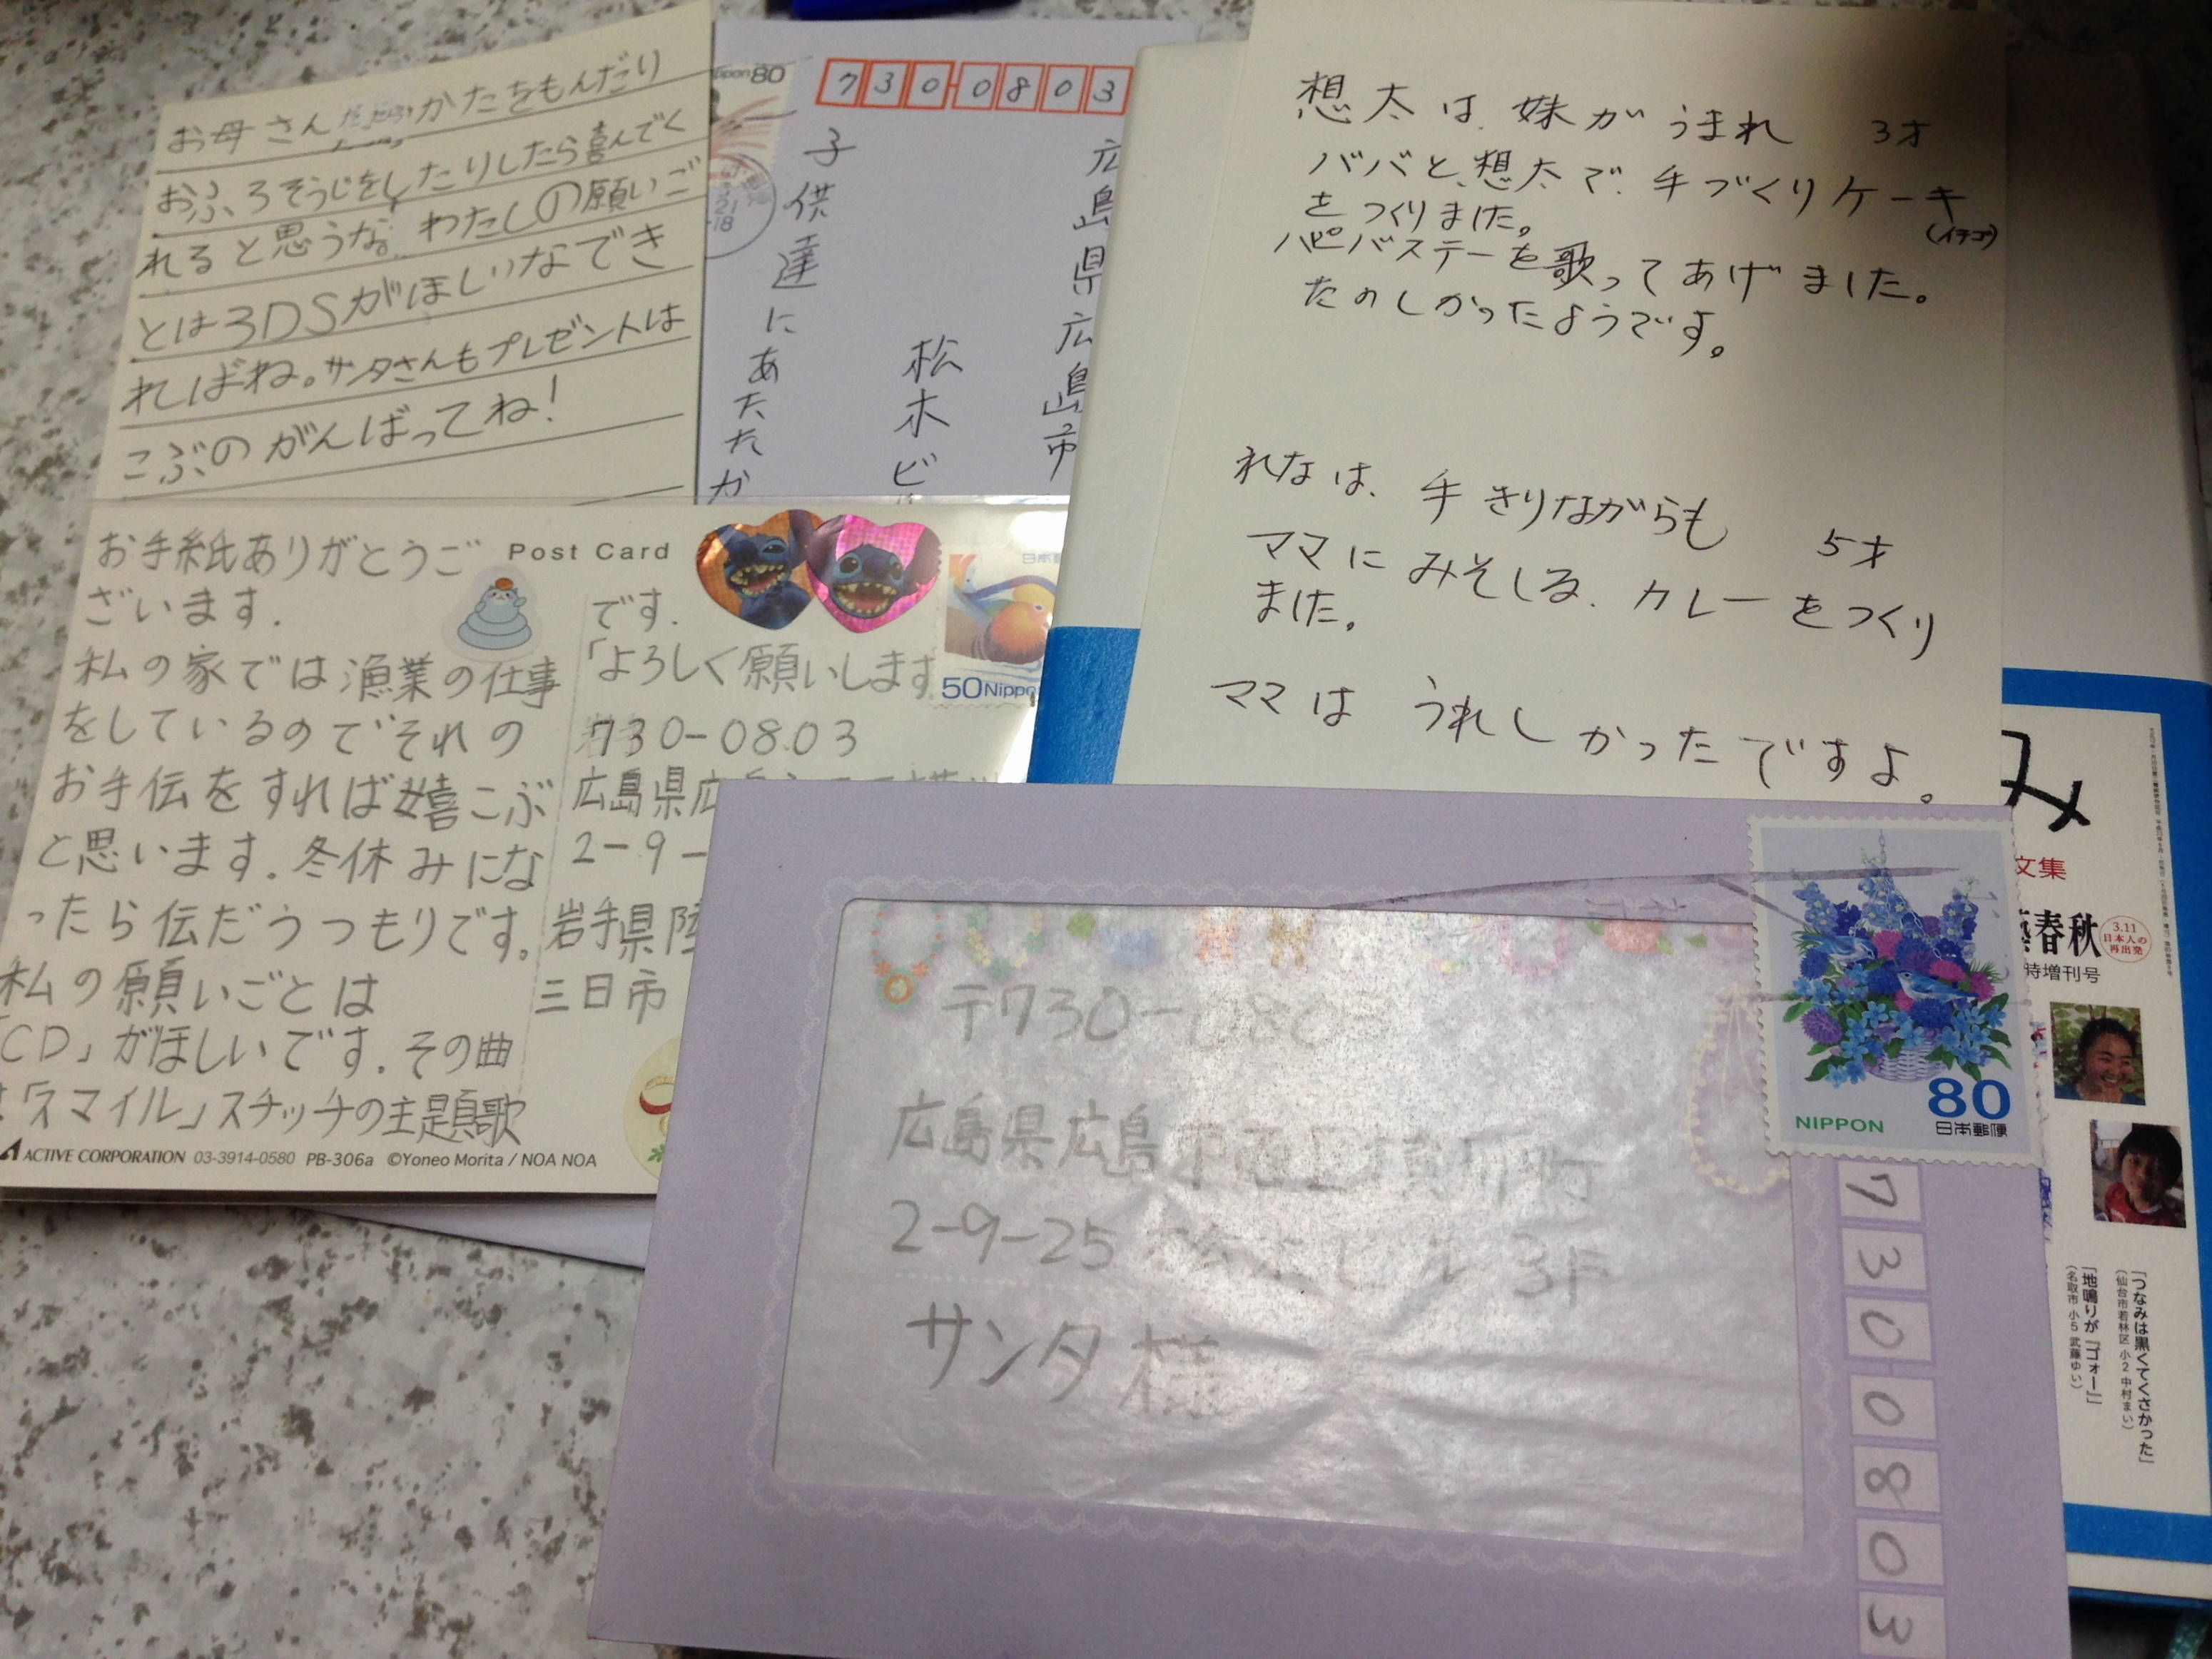 お母さん かたをもんだり
おふろそうじをしたりしたら喜んでく
れると思うな。わたしの願いご
とは3DSがほしいなでき
ればね。サンタさんもプレゼントは
こぶのがんばってね!
Nippon80
730-0803
広島県広島市
松木ビ
子供達にあたたか
想太は、妹がうまれ 3才
ババと、想太で、手づくりケーキ
(イチゴ)
をつくりました。
ハピバステーを歌ってあげました。
たのしかったようです。
れなは、手きりながらも 5才
ママにみそしる、カレーをつくり
ました。
ママは うれしかったですよ。
Post Card
お手紙ありがとうご
ざいます.
私の家では漁業の仕事
をしているのでそれの
お手伝をすれば嬉こぶ
と思います.冬休みにな
ったら伝だうつもりです。
私の願いごとは
「CD」がほしいです.その曲
は「スマイル」スチッチの主題歌
です.
「よろしく願いします
730-0803
広島県広
2-9-
岩手県陸
三日市
50Nippon
ACTIVE CORPORATION 03-3914-0580 PB-306a ©Yoneo Morita / NOA NOA
〒730-0803
広島県広島市西区横川町
2-9-25 松本ビル3F
サンタ様
80
NIPPON 日本郵便
7300803
み
文集
春秋
3.11
日本人の
再出発
時増刊号
「つなみは黒くてくさかった」
(仙台市若林区 小2 中村まい)
「地鳴りが『ゴォー』」
(名取市 小5 武藤ゆい)